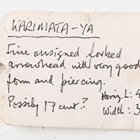 KARIMATA-YA
Fine unsigned forked
arrowhead with very good
form and piercing.
Possily 17 cent.?
Width: 3